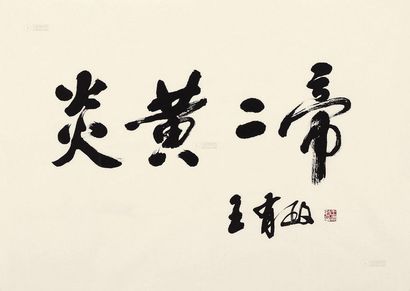 炎黄二帝
王有政